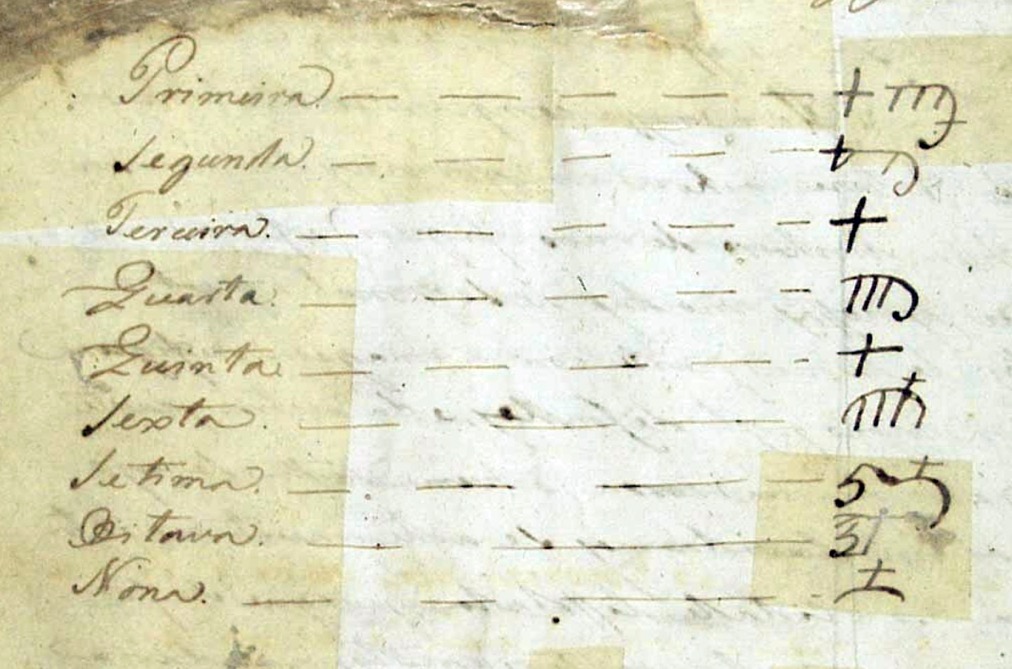 Primeira. — — — — — +
Segunda. — — — — —
Terceira. — — — — — +
Quarta. — — — — —
Quinta. — — — — — +
Sexta. — — —
Setima. — — — — 5
Oitava. — — 3
Nona. — — — —